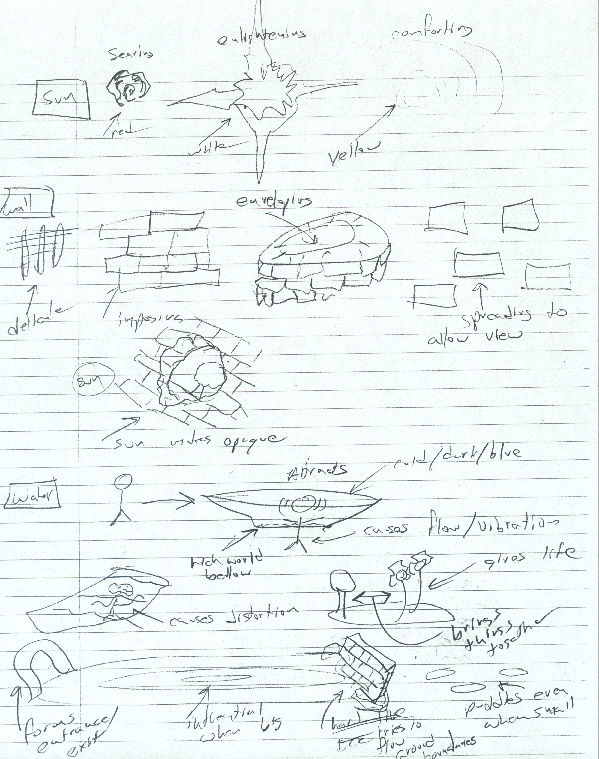 Searing
enlightening
comforting
sun
red
white
yellow
wall
enveloping
delicate
imposing
spreading to
allow view
sun
sun makes opaque
water
Attracts
cold/dark/blue
causes flow/vibration
rich world
bellow
gives life
causes distortion
brings
things
together
forms
entrance/
exit
influential
when big
tries to
flow
around
boundaries
puddles even
when small